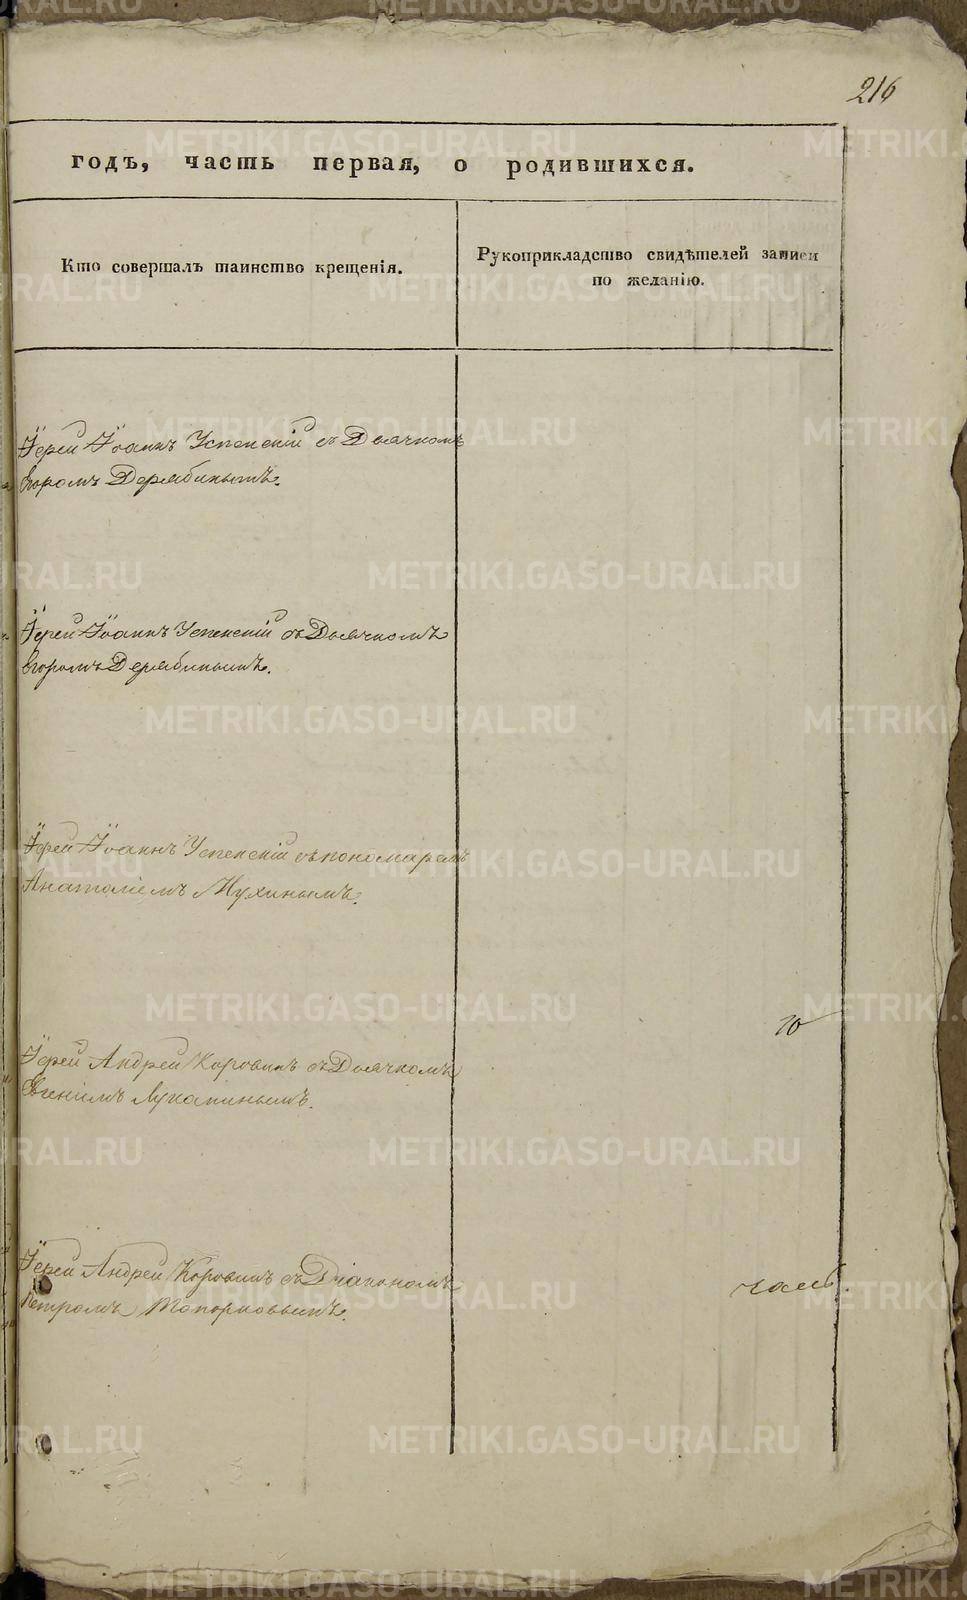 216
годъ, часть первая, о родившихся.
Кто совершалъ таинство крещенія.
Рукоприкладство свидѣтелей записи
по желанію.
Іерей Іоаннъ Успенскій съ Дьячкомъ
Егоромъ Дерябинымъ.
Іерей Іоаннъ Успенскій съ Дьячкомъ
Егоромъ Дерябинымъ.
Іерей Іоаннъ Успенскій съ пономаремъ
Анатоліемъ Мухинымъ.
Іерей Андрей Коровинъ съ Дьячкомъ
Евгеніемъ Лукапинымъ.
Іерей Андрей Коровинъ съ Діакономъ
Петромъ Топорковымъ.
METRIKI.GASO-URAL.RU